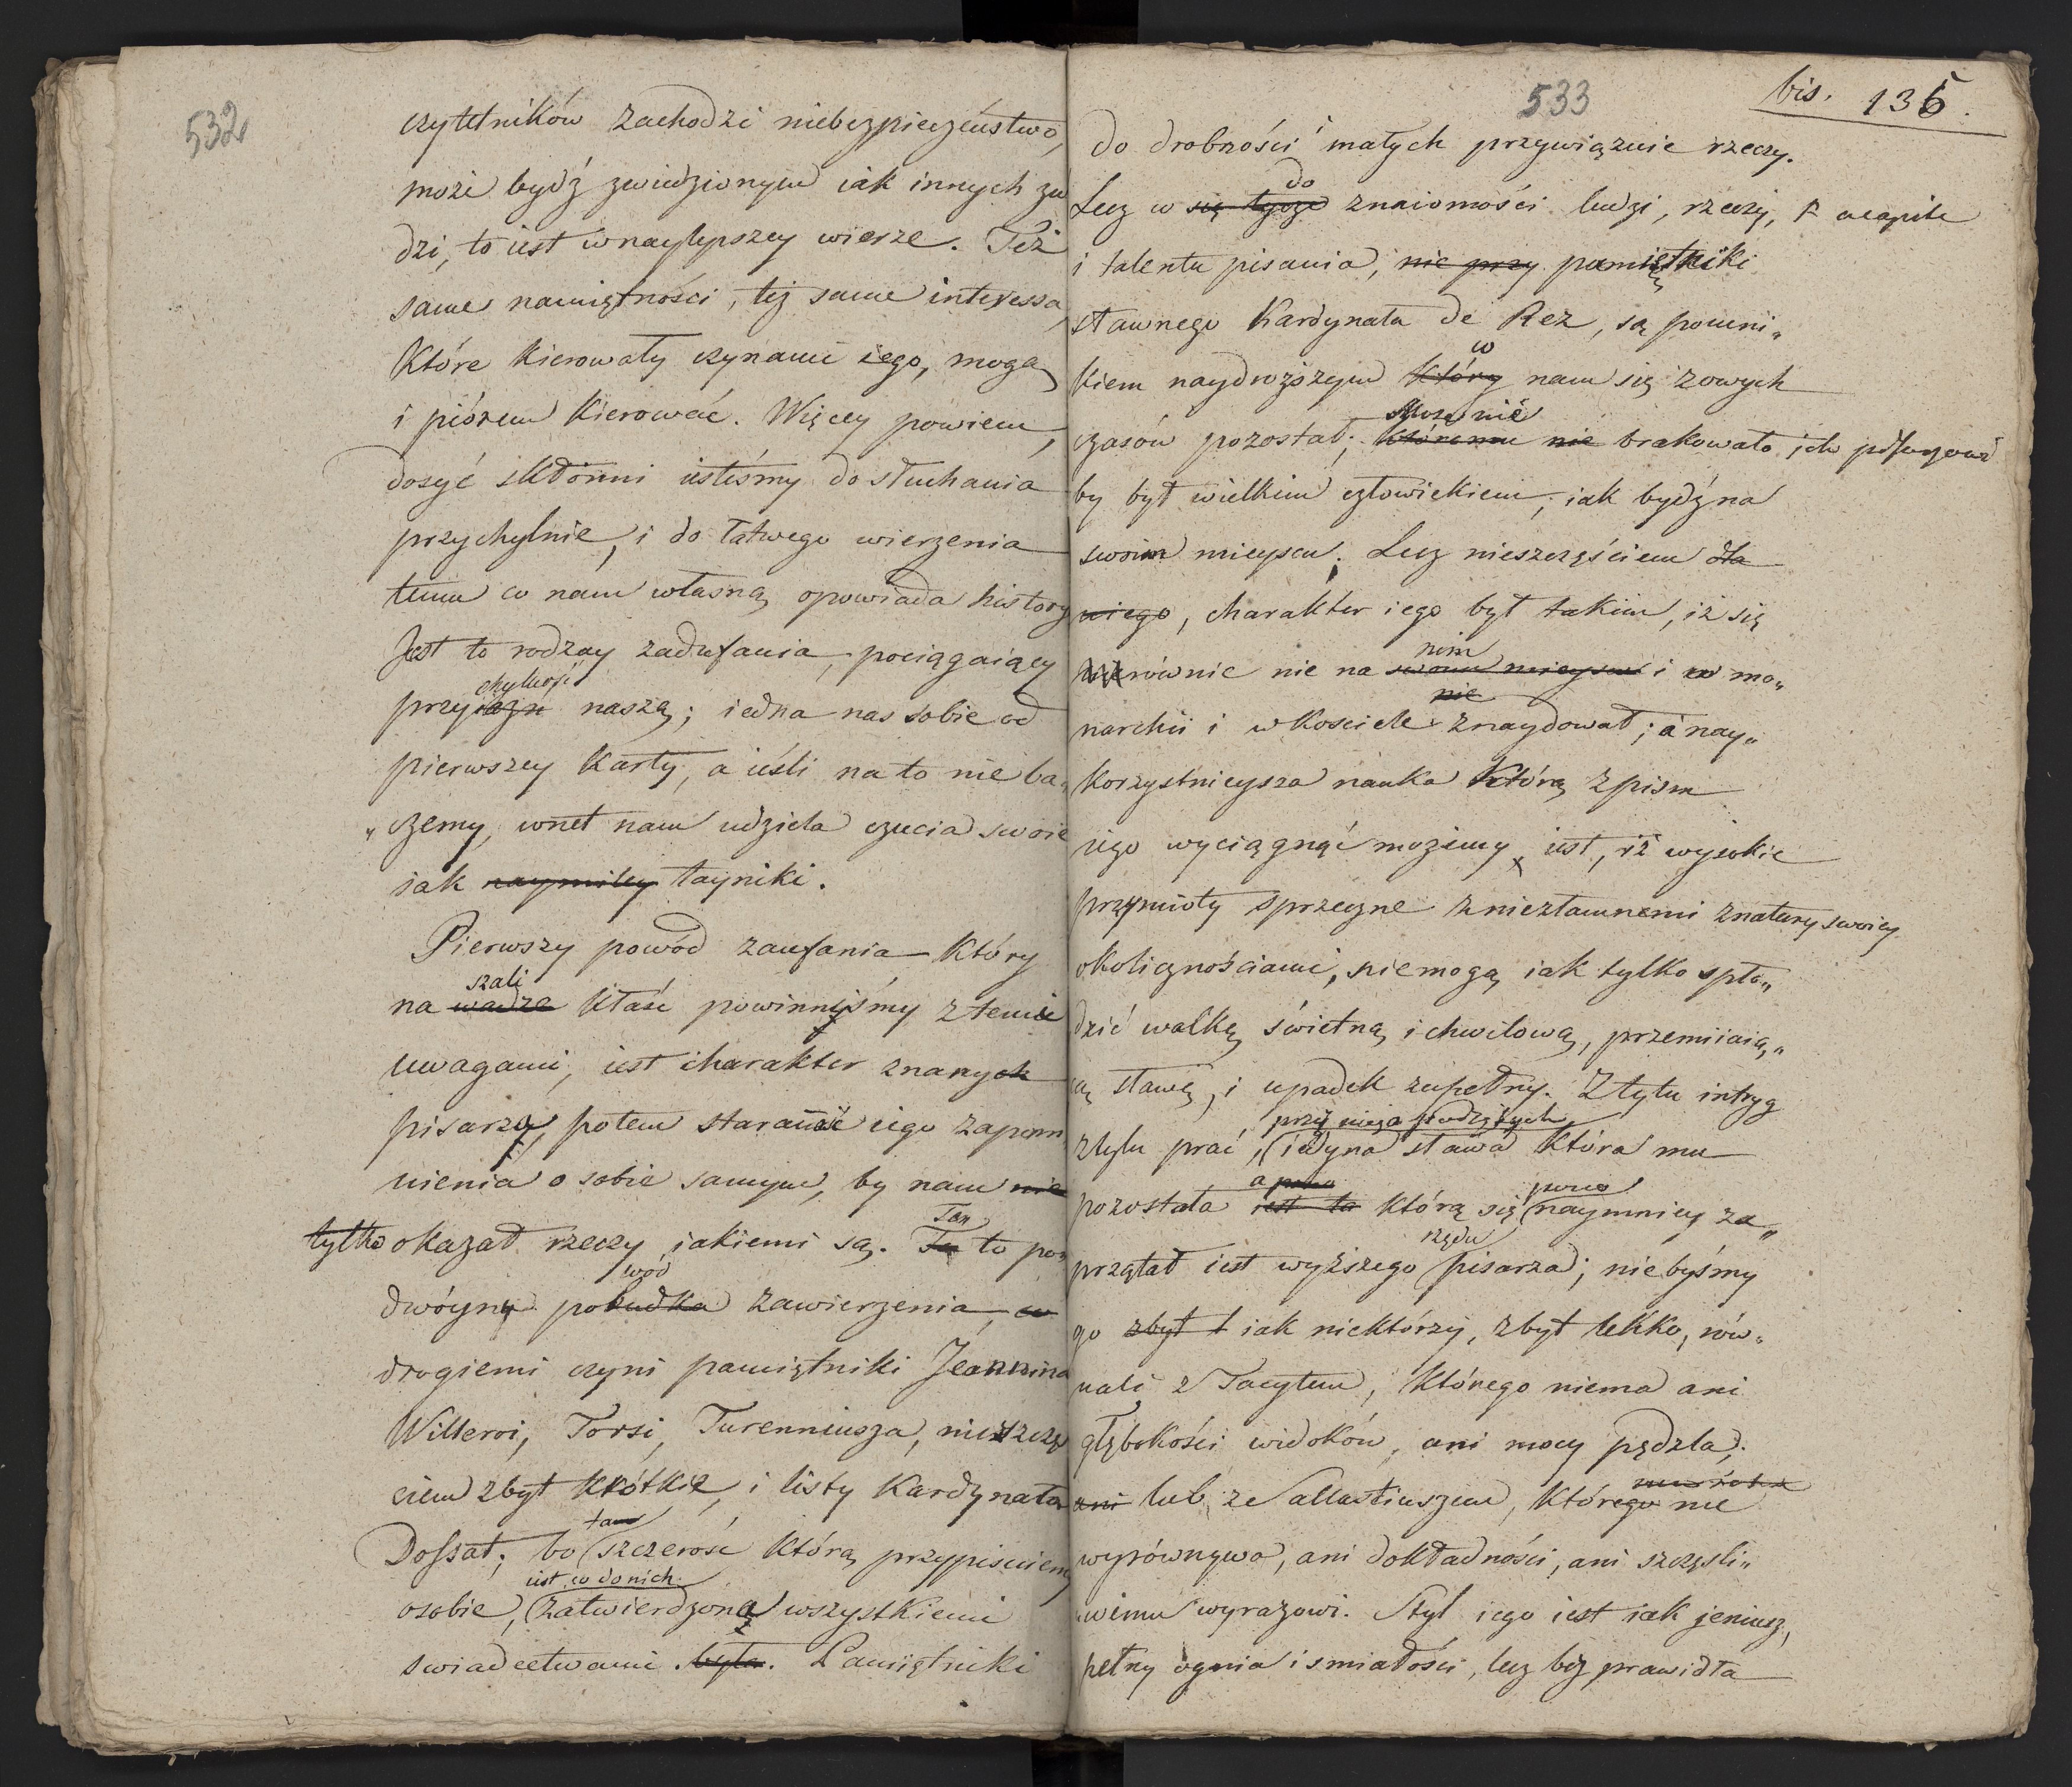 532
czytelników zachodzi niebezpieczeństwo,
może bydź zwiedzionym iak innych zw
dzi, to iest w naylepszey wierze. Też
same namiętności, też same interessa,
które kierowały czynami iego, mogą
i piórem kierować. Więcey powiem,
dosyć skłonni iesteśmy do słuchania
przychylnie, i do łatwego wierzenia
temu co nam własną opowiada history
Jest to rodzay zadufania, pociągaiący
chylność
przyiaźń naszą; iedna nas sobie od
pierwszey karty, a ieśli na to nie ba„
„czemy, wnet nam udziela czucia swoie
iak naymiley tayniki.
Pierwszy powód zaufania który
szali
na wadze kłaść powinniśmy z temi
uwagami, iest charakter znanych
pisarzy, potem staranie iego zapom„
nienia o sobie samym, by nam nie
tylko okazał rzeczy iakiemi są. Ta to po„
Ten
wód
dwóyny pobudka zawierzenia, w
drogiemi czyni pamiętniki Jeannina
Willeroi, Torsi, Turenniusza, nieszczę
ciem zbyt krótkie, i listy Kardynała
tam
Dossat; bo szczerość którą przypisuiem
iest co do nich
osobie, zatwierdzoną wszystkiemi
swiadectwami była. Pamiętniki
533
bis. 135.
do drobności i małych przywiązuie rzeczy.
do
Lecz w się tycze znaiomości ludzi, rzeczy, a capite
i talentu pisania, nie przy pamiętniki
sławnego Kardynała de Rez, są pomni„
w
kiem naydroższym który nam się z owych
czasów pozostał; któremu nie brakowało
by był wielkim człowiekiem, iak bydź na
swoim mieyscu. Lecz nieszczęściem dla
niego, charakter iego był takim, iż się
nim
równie nie na swoim mieyscu i w mo„
nie
narchii i w kościele znaydował; a nay„
korzystnieysza nauka którą z pism
iego wyciągnąć możemy, iest, iż wysokie
przymioty sprzeczne z niezłamnemi z natury swoiey
okolicznościami, nie mogą iak tylko spło„
dzić walkę świetną i chwilową, przemiiaią„
cą sławę, i upadek zupełny. Z tylu intryg
przez niego podiętych
z tylu prac, iedyna sława która mu
pozostała iest ta którą się naymniey za„
rzędu
przątał iest wyższego pisarza; nie byśmy
go zbyt ł iak niektórzy, zbyt lekko, rów„
nali z Tacytem, którego niema ani
głębokości widoków, ani mocy pędzla;
ani lub ze Sallustiuszem, którego nie
wyrównywa, ani dokładności, ani szczęśli„
„wemu wyrazowi. Styl iego iest iak jeniusz,
pełny ognia i smiałości, lecz bez prawidła